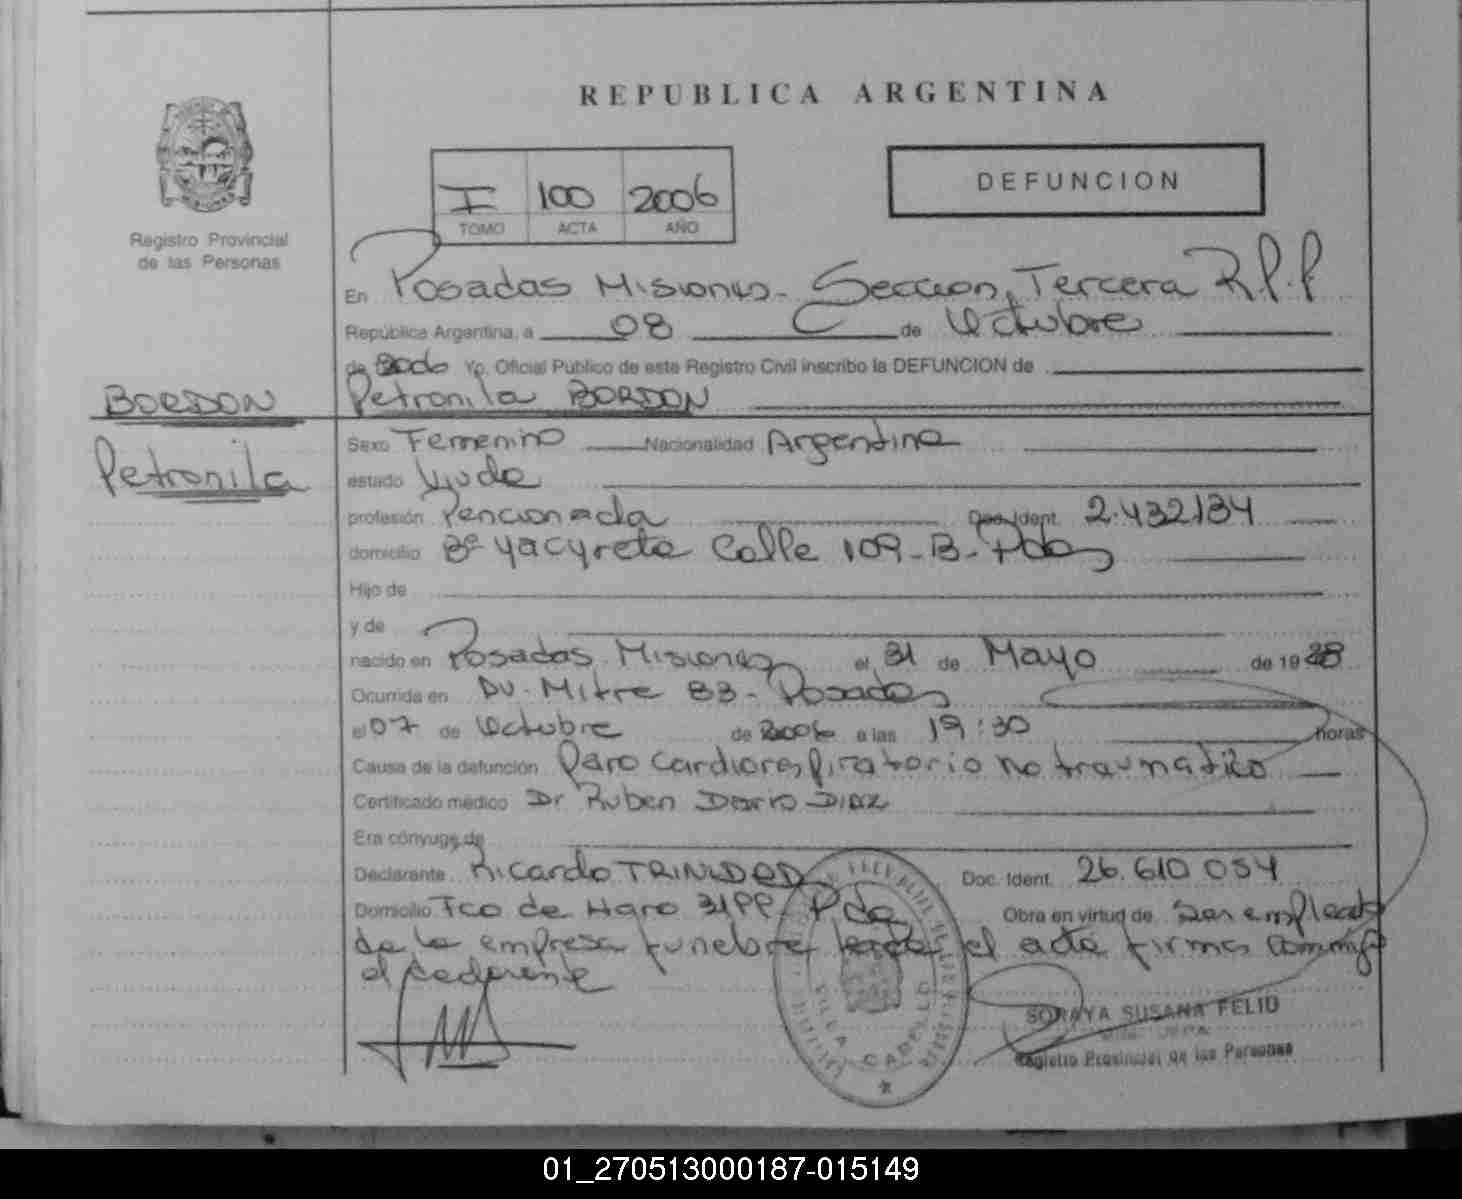 REPUBLICA ARGENTINA
I 100 2006
TOMO ACTA AÑO
DEFUNCION
Registro Provincial
de las Personas
En Posadas Misiones - Seccion Tercera R.P.P
República Argentina, a 08 de Octubre
de Yo, Oficial Público de este Registro Civil inscribo la DEFUNCION de
BORDON
Petronila
Petronila BORDON
Sexo Femenino Nacionalidad Argentina
estado Viuda
profesión Pencionada Doc. Ident. 2.432134
domicilio Bº Yacyreta Calle 109-B-Pdas
Hijo de
y de
nacido en Posadas Misiones el 31 de Mayo de 19
Ocurrida en Av. Mitre 83 - Posadas
el 07 de Octubre de 2006 a las 19:30 horas
Causa de la defunción Paro cardiorespiratorio no traumatico
Certificado médico Dr Ruben Dario DIAZ
Era cónyuge de
Declarante Ricardo TRINIDAD Doc. Ident. 26.610 054
Domicilio Fco de Haro Pdas Obra en virtud de Ser empleado
de la empresa funebre el acta firma conmigo
el
VILLA CABELLO
SORAYA SUSANA FELIU
Registro Provincial de las Personas
01_270513000187-015149